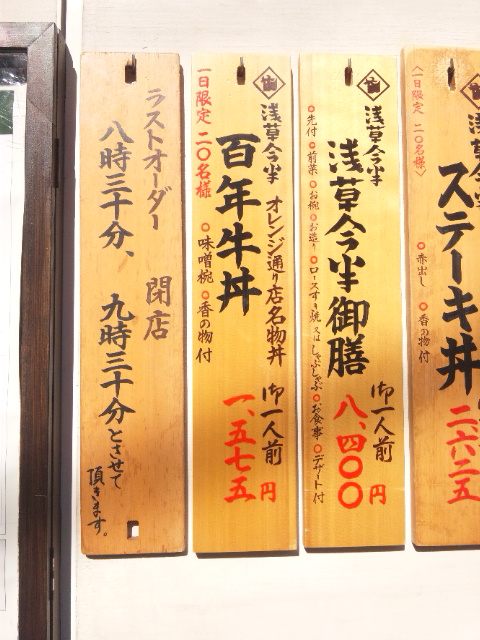 ラストオーダー
八時三十分、
閉店
九時三十分とさせて
頂きます。
浅草今半 オレンジ通り店名物丼
百年牛丼
一日限定 二〇名様
○味噌椀 ○香の物付
御一人前
一、五七五円
浅草今半
浅草今半御膳
○先付 ○前菜 ○お椀 ○お造り ○ロースすき焼又はしゃぶしゃぶ ○お食事 ○デザート付
御一人前
八、四〇〇円
浅草今半
ステーキ丼
〈一日限定 二〇名様〉
○赤出し ○香の物付
二、六二五